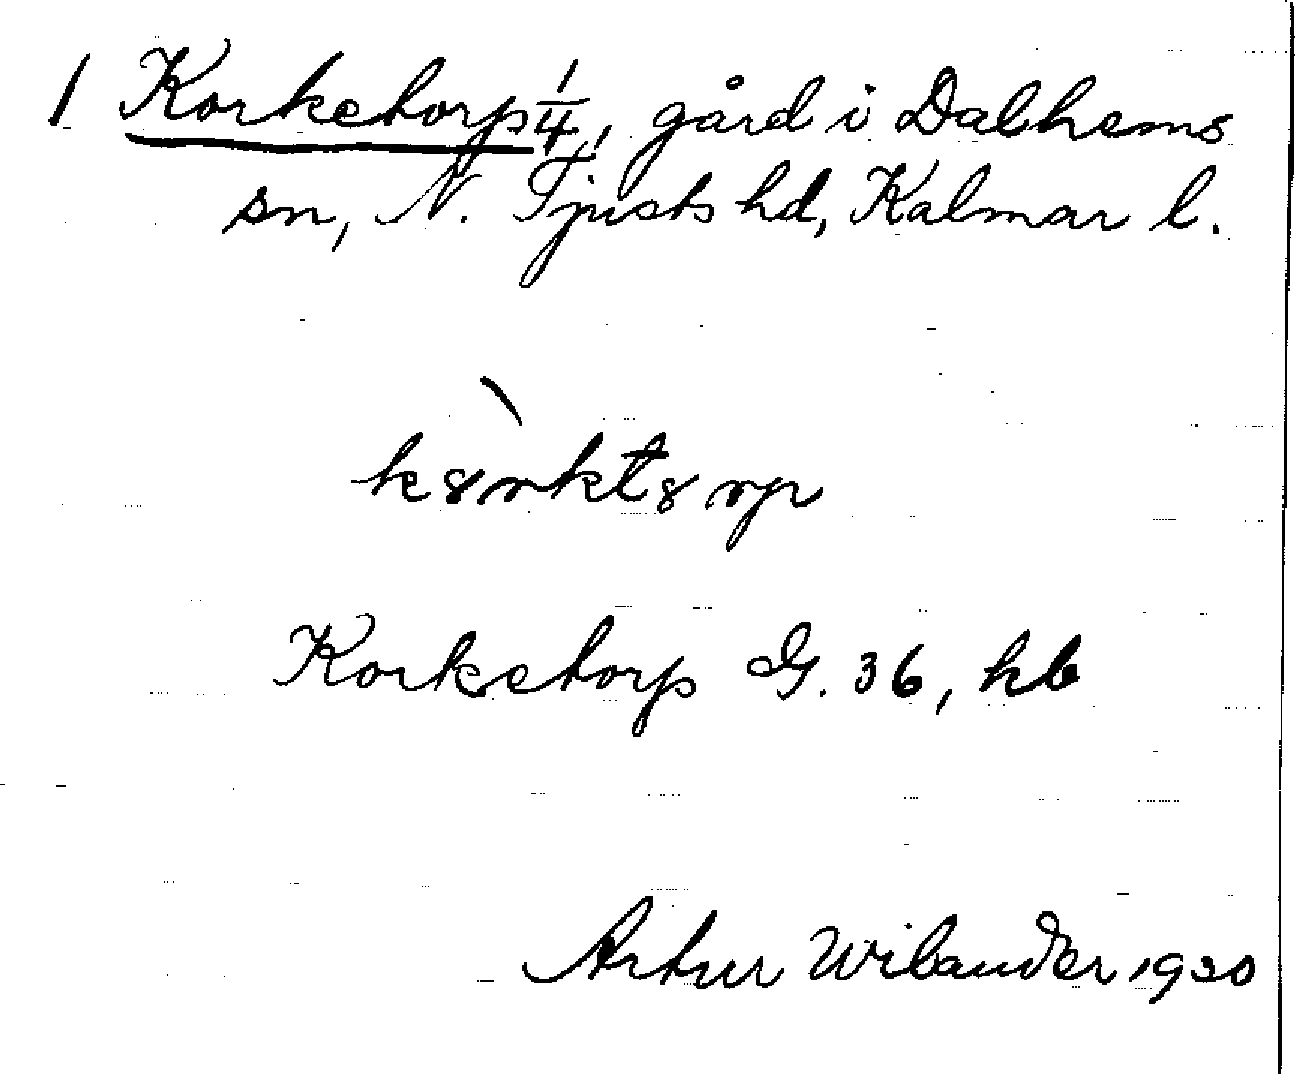 1 Korketorp 1/4, gård i Dalhems
sn, N. Tjusts hd, Kalmar l.
k8rkt8rp
Korketorp G. 36, hb
Artur Wilander 1930